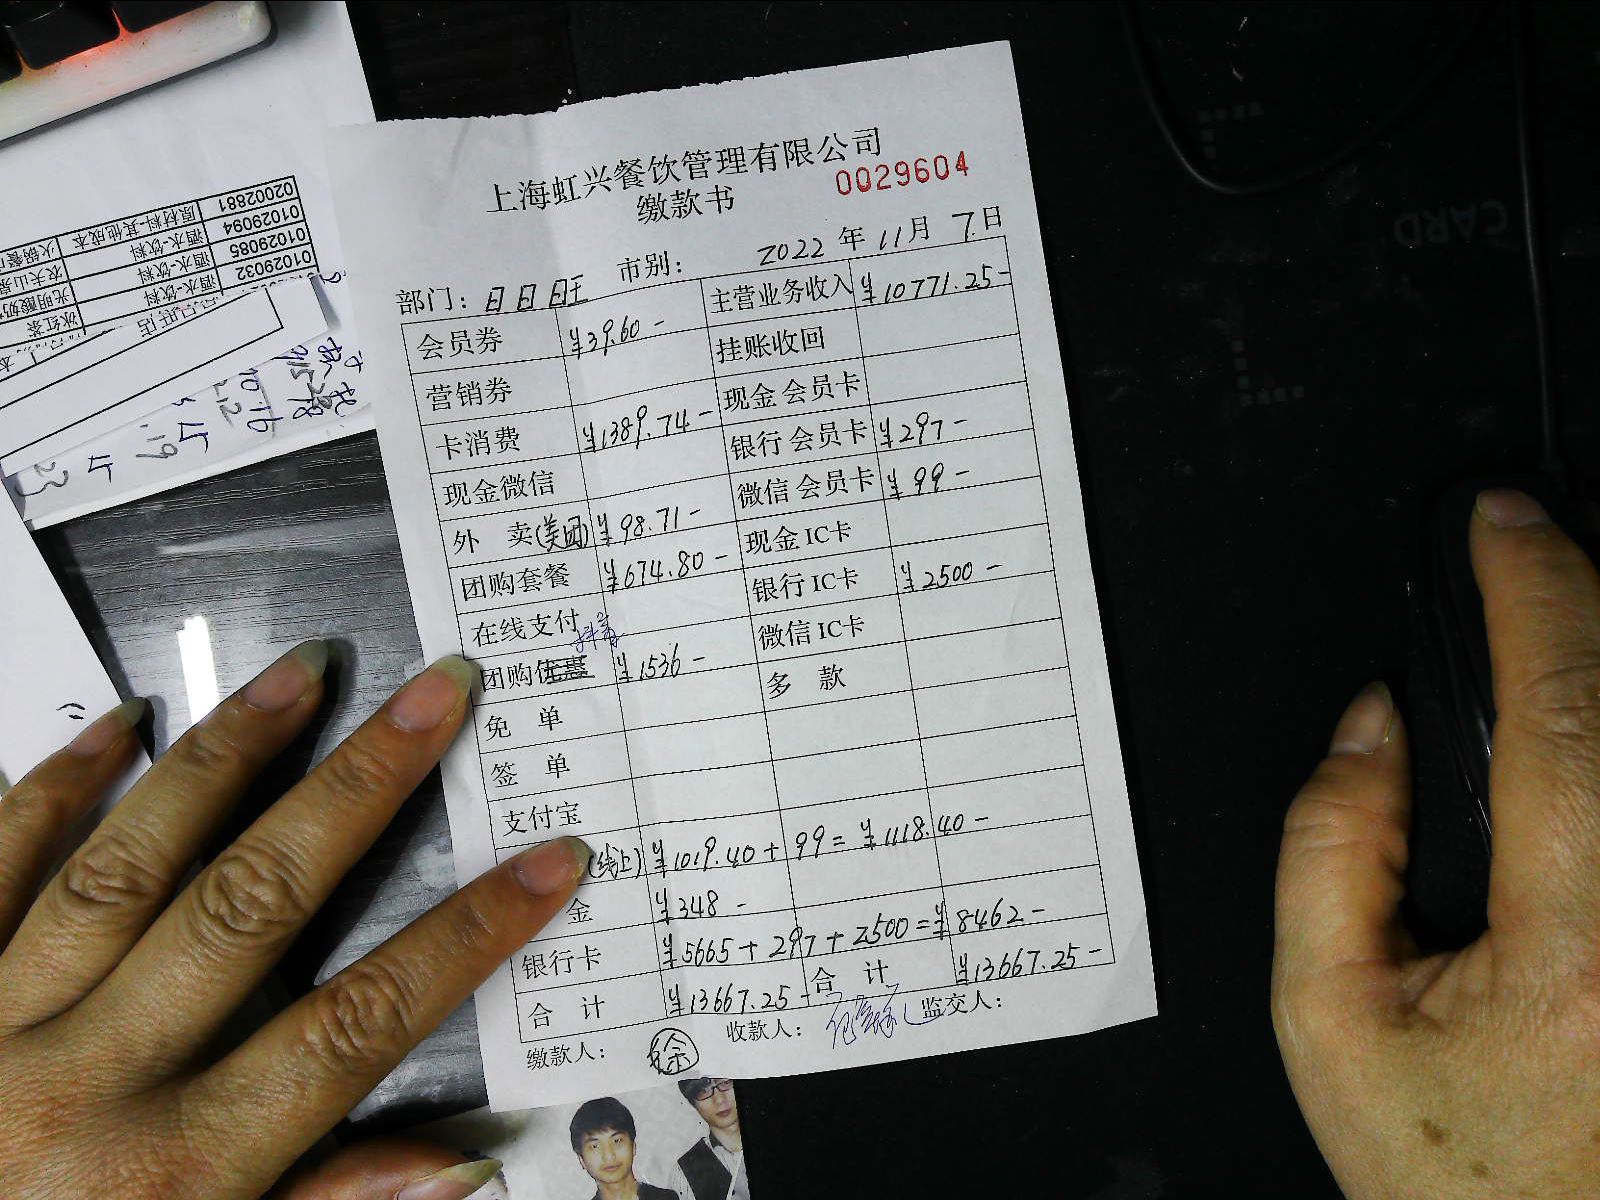 上海虹兴餐饮管理有限公司
缴款书
0029604
部门：日日旺 市别： 2022 年 11月 7日
会员券 ¥39.60- 主营业务收入 ¥10771.25-
营销券 挂账收回
卡消费 ¥1389.74- 现金会员卡
现金微信 银行会员卡 ¥297-
外 卖(美团) ¥98.71- 微信会员卡 ¥99-
团购套餐 ¥674.80- 现金IC卡
在线支付 银行IC卡 ¥2500-
抖音
团购优惠 ¥1536- 微信IC卡
免 单 多 款
签 单
支付宝
(线上) ¥1019.40+99=¥1118.40-
金 ¥348-
银行卡 ¥5665+297+2500=¥8462-
合 计 ¥13667.25- 合 计 ¥13667.25-
缴款人： 徐 收款人： 监交人：
02002881 原材料-其他成本
01029094 酒水-饮料
01029085 酒水-饮料
01029032 酒水-饮料
火锅餐
农夫山泉
光明酸奶
冰红茶
CARD